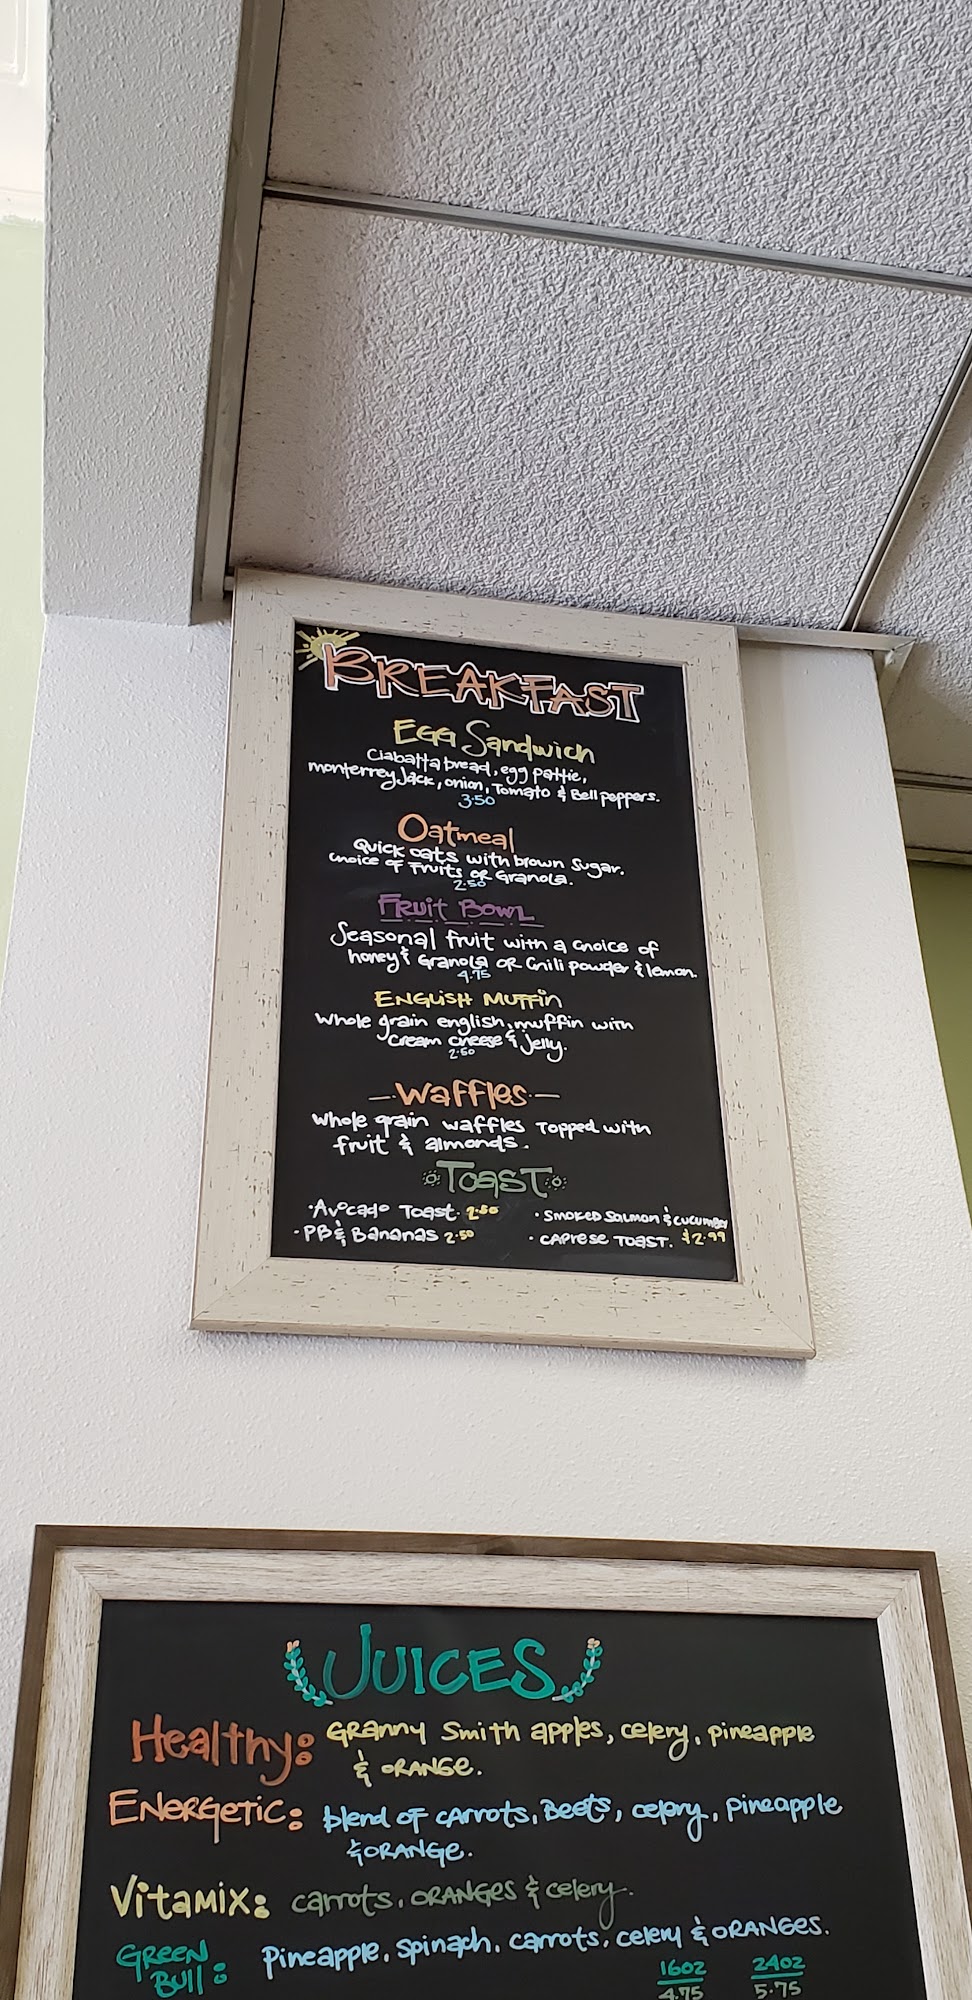 BREAKFAST
Egg Sandwich
Ciabatta bread, egg pattie,
monterrey Jack, onion, Tomato & Bell peppers.
3.50
Oatmeal
Quick oats with brown Sugar.
choice of Fruits or Granola.
2.50
Fruit Bowl
Seasonal fruit with a choice of
honey & Granola or Chili powder & lemon.
4.75
English Muffin
Whole grain english muffin with
Cream cheese & Jelly.
2.50
- Waffles -
Whole grain waffles Topped with
fruit & almonds.
TOAST
· Avocado Toast. 2.50
· Smoked Salmon & cucumber
· PB & Bananas 2.50
· Caprese Toast. $2.99
JUICES
Healthy: Granny Smith apples, celery, pineapple
& ORANGE.
ENERGETIC: blend of carrots, Beets, celery, pineapple
& ORANGE.
Vitamix: carrots, ORANGES & celery.
GREEN Bull: Pineapple, spinach, carrots, celery & ORANGES.
16oz 24oz
4.75 5.75